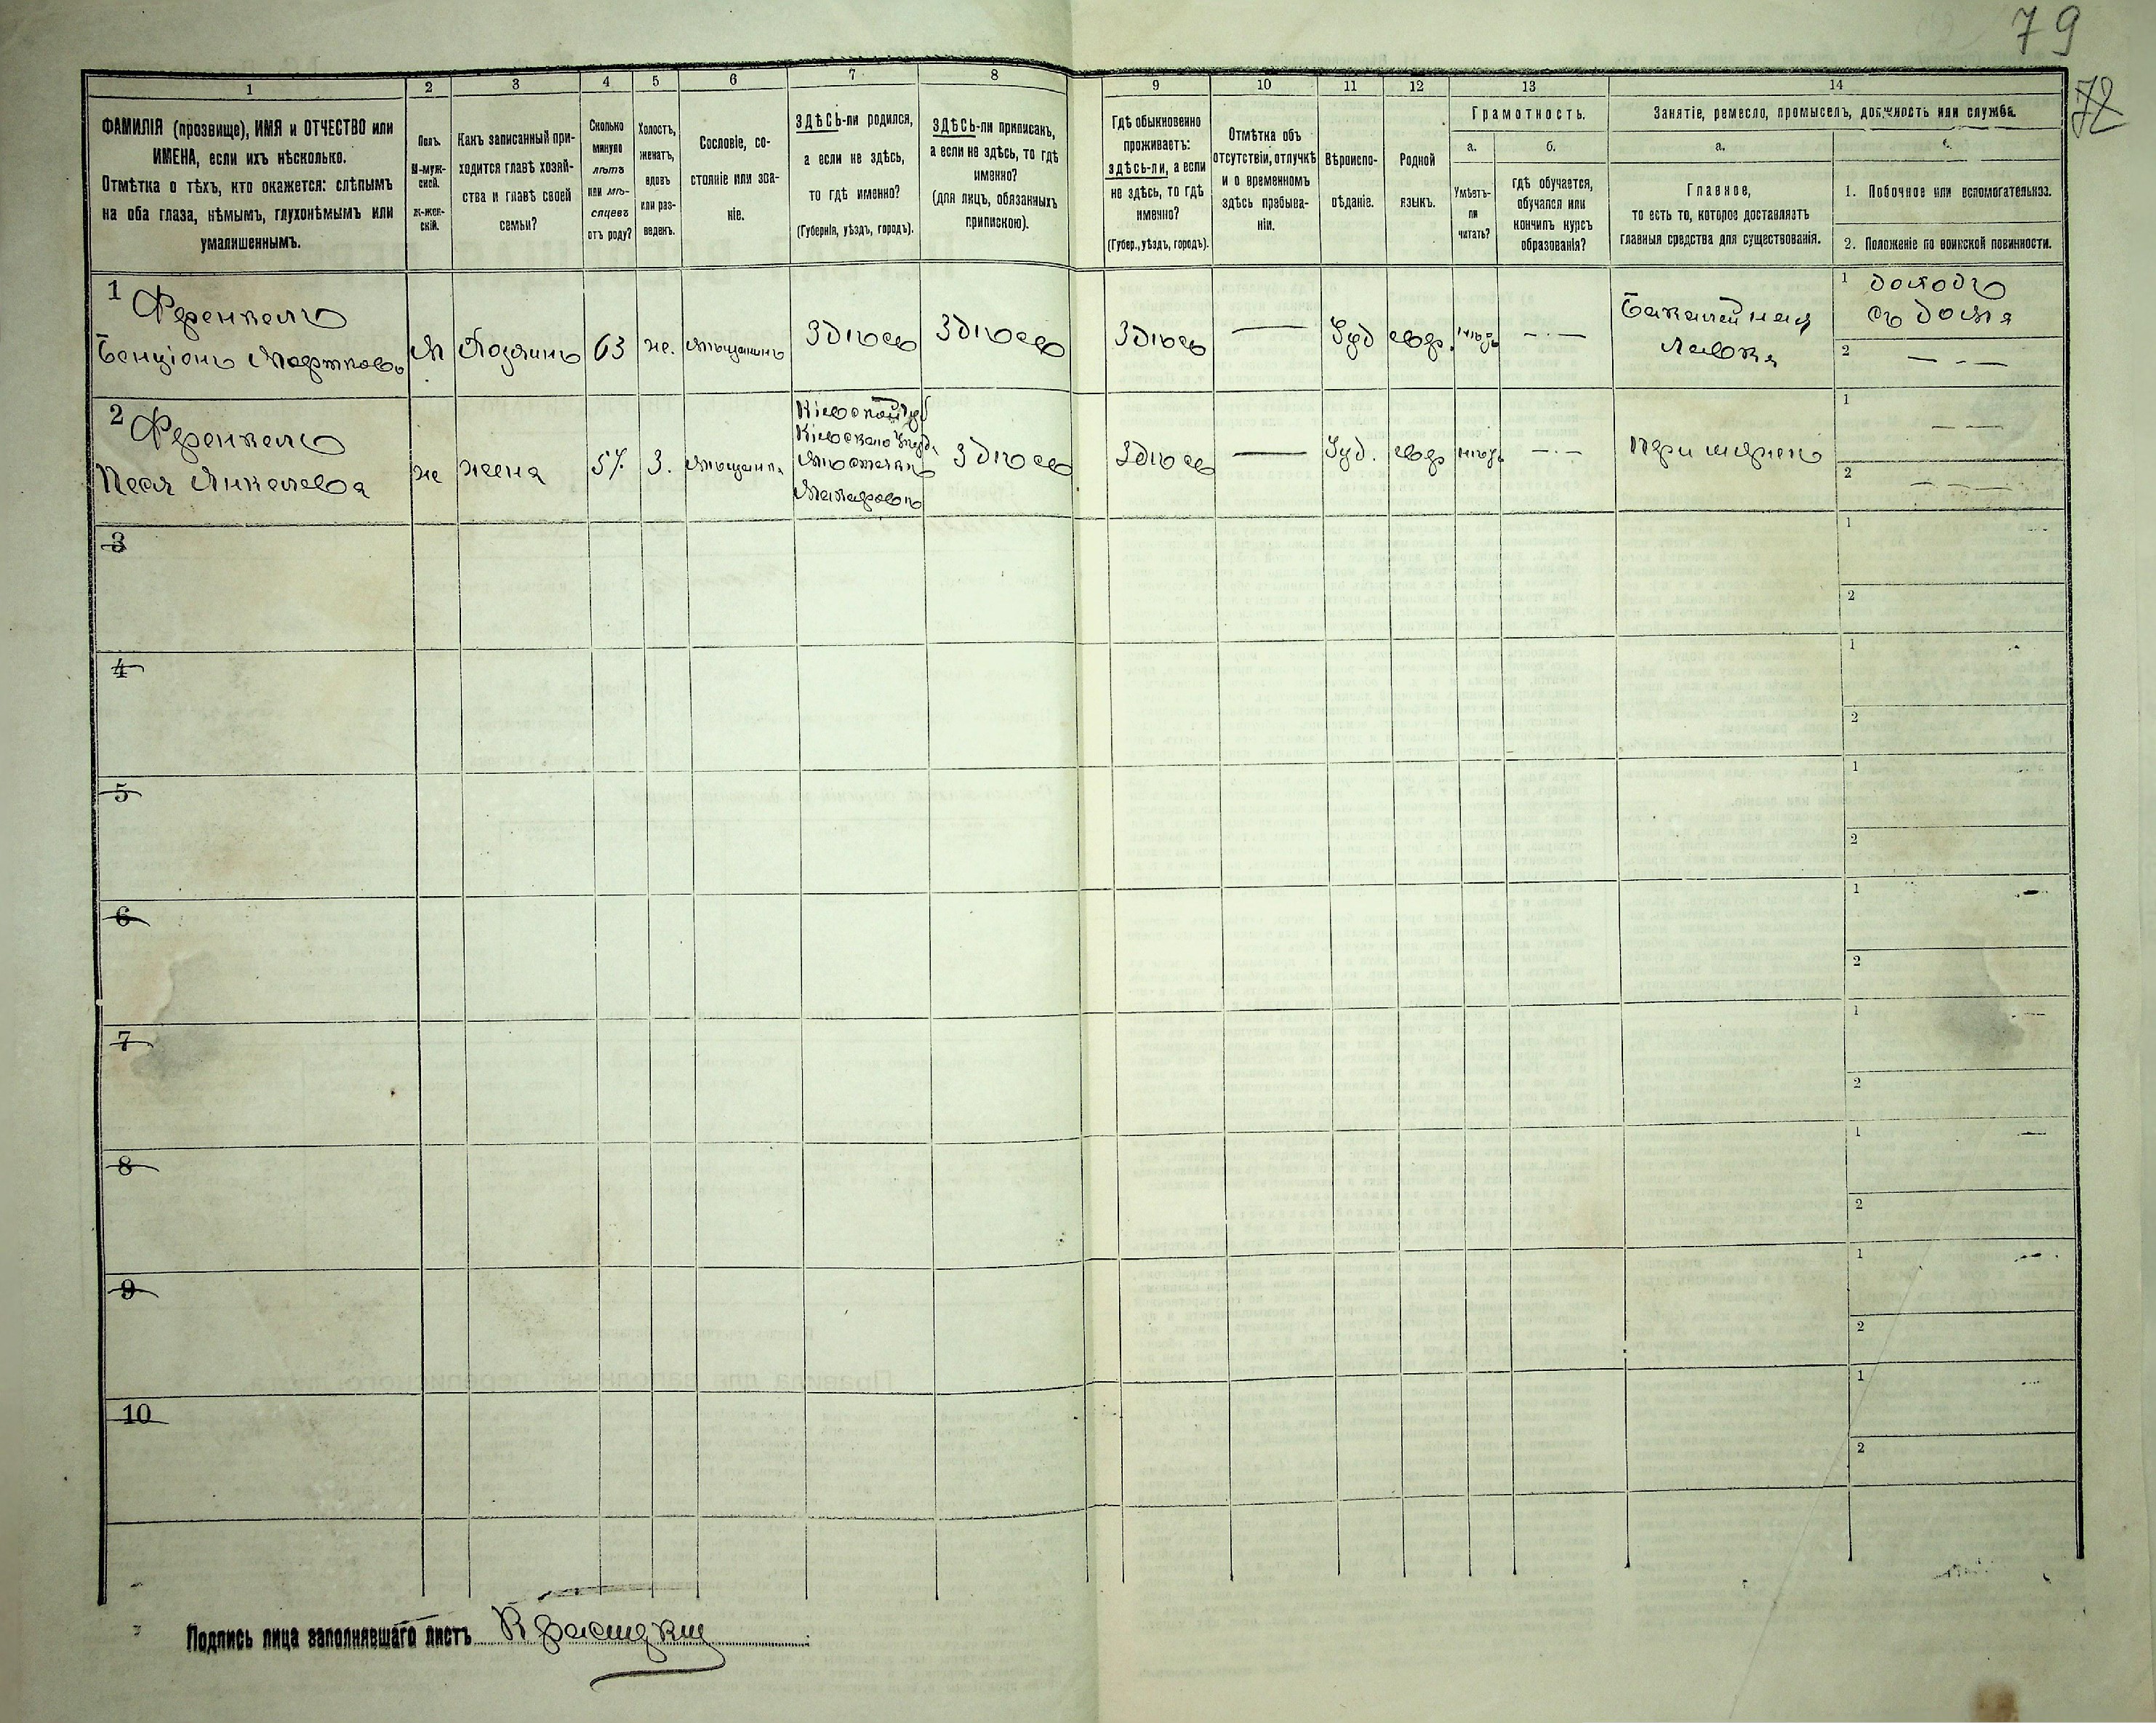 79
72
1
2
3
4
5
6
7
8
9
10
11
12
13
14
ФАМИЛІЯ (прозвище), ИМЯ и ОТЧЕСТВО или
ИМЕНА, если ихъ нѣсколько.
Отмѣтка о тѣхъ, кто окажется: слѣпымъ
на оба глаза, нѣмымъ, глухонѣмымъ или
умалишеннымъ.
Полъ.
М-муж-
ской.
Ж-жен-
скій.
Какъ записанный при-
ходится главѣ хозяй-
ства и главѣ своей
семьи?
Сколько
минуло
лѣтъ
или мѣ-
сяцевъ
отъ роду?
Холостъ,
женатъ,
вдовъ
или раз-
веденъ.
Сословіе, со-
стояніе или зва-
ніе.
ЗДѢСЬ-ли родился,
а если не здѣсь,
то гдѣ именно?
(Губернія, уѣздъ, городъ).
ЗДѢСЬ-ли приписанъ,
а если не здѣсь, то гдѣ
именно?
(для лицъ, обязанныхъ
припискою).
Гдѣ обыкновенно
проживаетъ:
здѣсь-ли, а если
не здѣсь, то гдѣ
именно?
(Губер., уѣздъ, городъ).
Отмѣтка объ
отсутствіи, отлучкѣ
и о временномъ
здѣсь пребыва-
ніи.
Вѣроиспо-
вѣданіе.
Родной
языкъ.
Грамотность.
а.
Умѣетъ-
ли
читать?
б.
гдѣ обучается,
обучался или
кончилъ курсъ
образованія?
Занятіе, ремесло, промыселъ, должность или служба.
а.
Главное,
то есть то, которое доставляетъ
главныя средства для существованія.
1. Побочное или вспомогательное.
2. Положеніе по воинской повинности.
1
Френкель
Бенціонъ Мортковъ
М
Хозяинъ
63
же.
мѣщанинъ
Здѣсь
Здѣсь
Здѣсь
—
Іуд
евр.
нѣтъ
— · —
Бакалейная
лавка
1 доходъ
съ дома
2 — - —
2
Френкель
Песя Янкелева
же
жена
57
З.
мѣщанка
Кіевской губ
Кіевскаго уѣзда
мѣстечкѣ
Макаровъ
Здѣсь
Здѣсь
—
Іуд.
евр
нѣтъ
— · —
При мужѣ
1 — —
2 — — —
3
1
2
4
1
2
5
1
2
6
1
2
7
1
2
8
1
2
9
1
2
10
1
2
Подпись лица заполнявшаго листъ